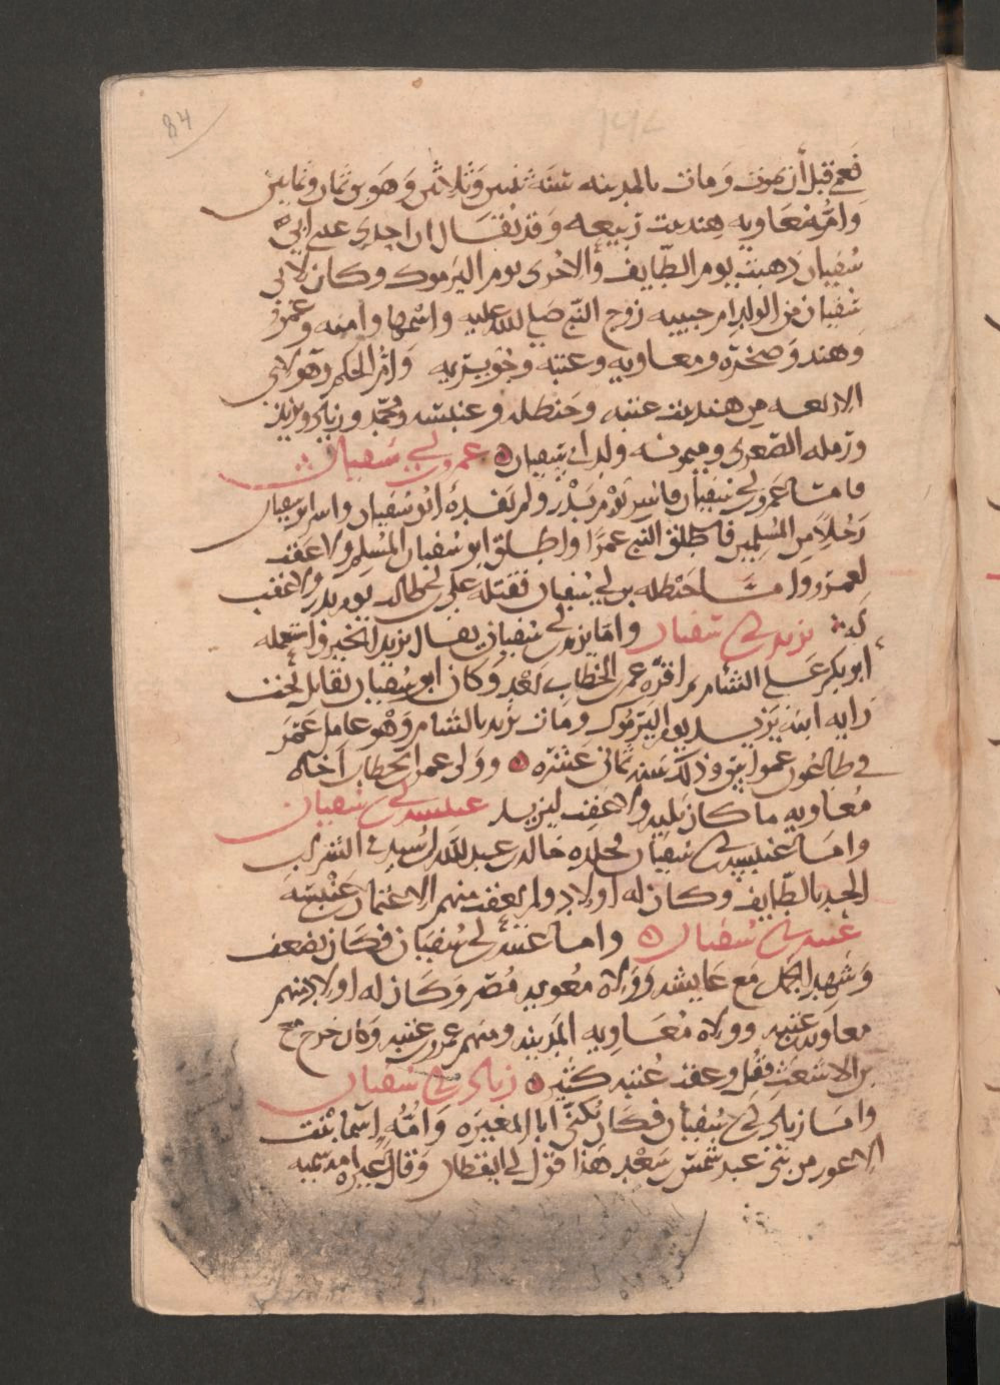 84
فعمي قبل أن يموت ومات بالمدينه سنه ثنتين وثلاثين وهو بن ثمان وثمانين
وامّ معاويه هند بنت ربيعه وقد يقال ان احدى عيني ابي
سفيان ذهبت يوم الطايف والاخرى يوم اليرموك وكان لابي
سفيان من الولد ام حبيبه زوج النبي صلى الله عليه واسمها وامنه وعمرو
وهند وصخره ومعاويه وعتبه وجويريه وامّ الحكم وهولاى
الاربعه من هند بنت عتبه وحنظله وعنبسه ومحمّد وزياد ويزيد
ورمله الصغرى وميمونه ولد ابي سفيان عمرو بن ابي سفيان
فامّا عمرو بن ابي سفيان فاسر يوم بدر ولم يفده ابو سفيان واسر ابو سفيان
رجلاً من المسلمين فاطلق النبي عمرًا واطلق ابو سفيان المسلم ولا عقب
لعمرو وامّا حنظله بن ابي سفيان فقتله علي بن ابي طالب يوم بدر ولا عقب
له يزيد بن ابي سفيان وامّا يزيد بن ابي سفيان يقال يزيد الخير واستعمله
ابو بكر على الشام ثم اقرّه عمر بن الخطاب بعد وكان ابو سفيان يقاتل تحت
رايه ابنه يزيد يوم اليرموك ومات يزيد بالشام وهو عامل عمر
في طاعون عمواس وذلك سنه ثماني عشره وولى عمر بن الخطاب اخاه
معاويه ما كان يليه ولا عقب ليزيد عنبسه بن ابي سفيان
وامّا عنبسه بن ابي سفيان فجلده خالد بن عبد الله بن اسيد في الشراب
الحد بالطايف وكان له اولاد ولم يعقب منهم الا عثمان بن عنبسه
عتبه بن ابي سفيان وامّا عتبه بن ابي سفيان فكان يضعف
وشهد الجمل مع عايشه وولاه معويه مصر وكان له اولاد منهم
معاويه بن عتبه وولاه معاويه المدينه ومنهم عمرو بن عتبه وكان خرج مع
بن الاشعث فقتل وعقب عتبه كثير زياد بن ابي سفيان
وامّا زياد بن ابي سفيان فكان يكنّى ابا المغيره وامّه اسما بنت
الاعور من بني عبد شمس بن سعد هذا قول ابي اليقظان وقال غيره امه سميه